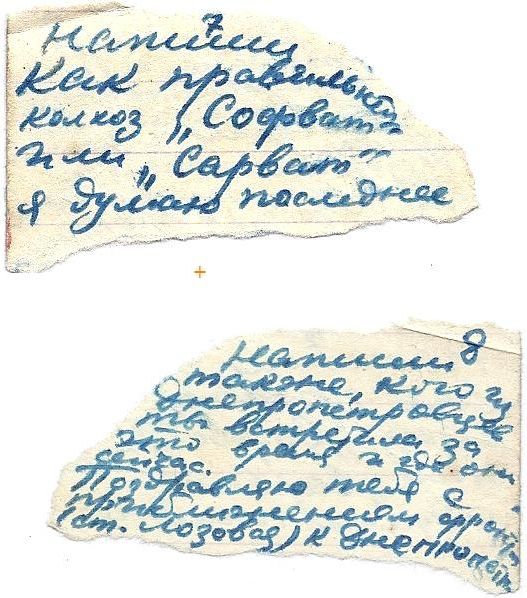 7
Напиши
как правильней
колхоз „Софват“
или „Сарват“
я думаю последнее
8
Напиши
также, кого из
днепропетровцев
ты встретила за
это время и где они
сейчас.
Поздравляю тебя с
приближением фронта
(ст. Лозовая) к Днепропетр